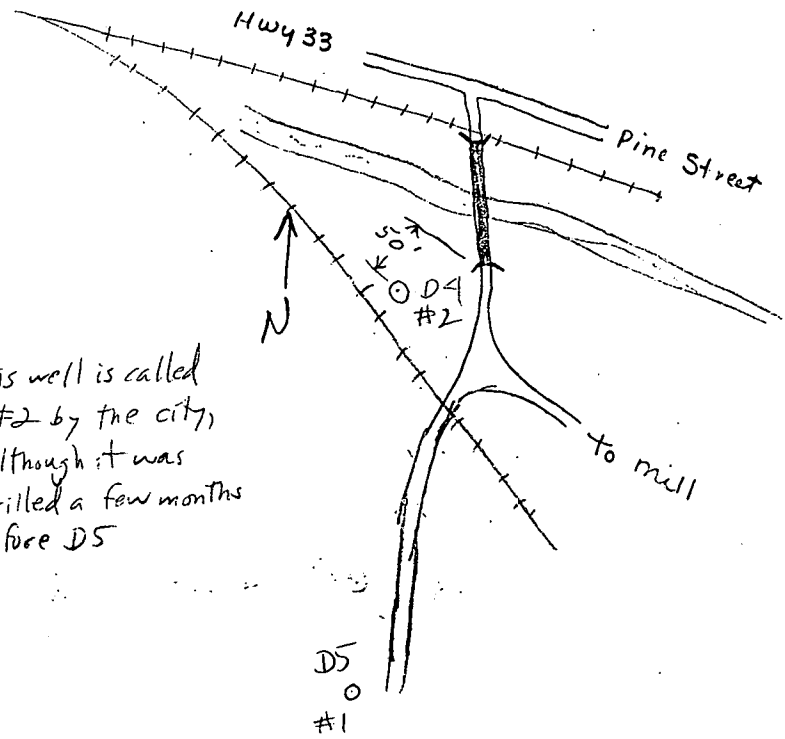 Hwy 33
Pine Street
50'
D4
#2
N
is well is called
#2 by the city,
lthough it was
rilled a few months
fore D5
To mill
D5
#1